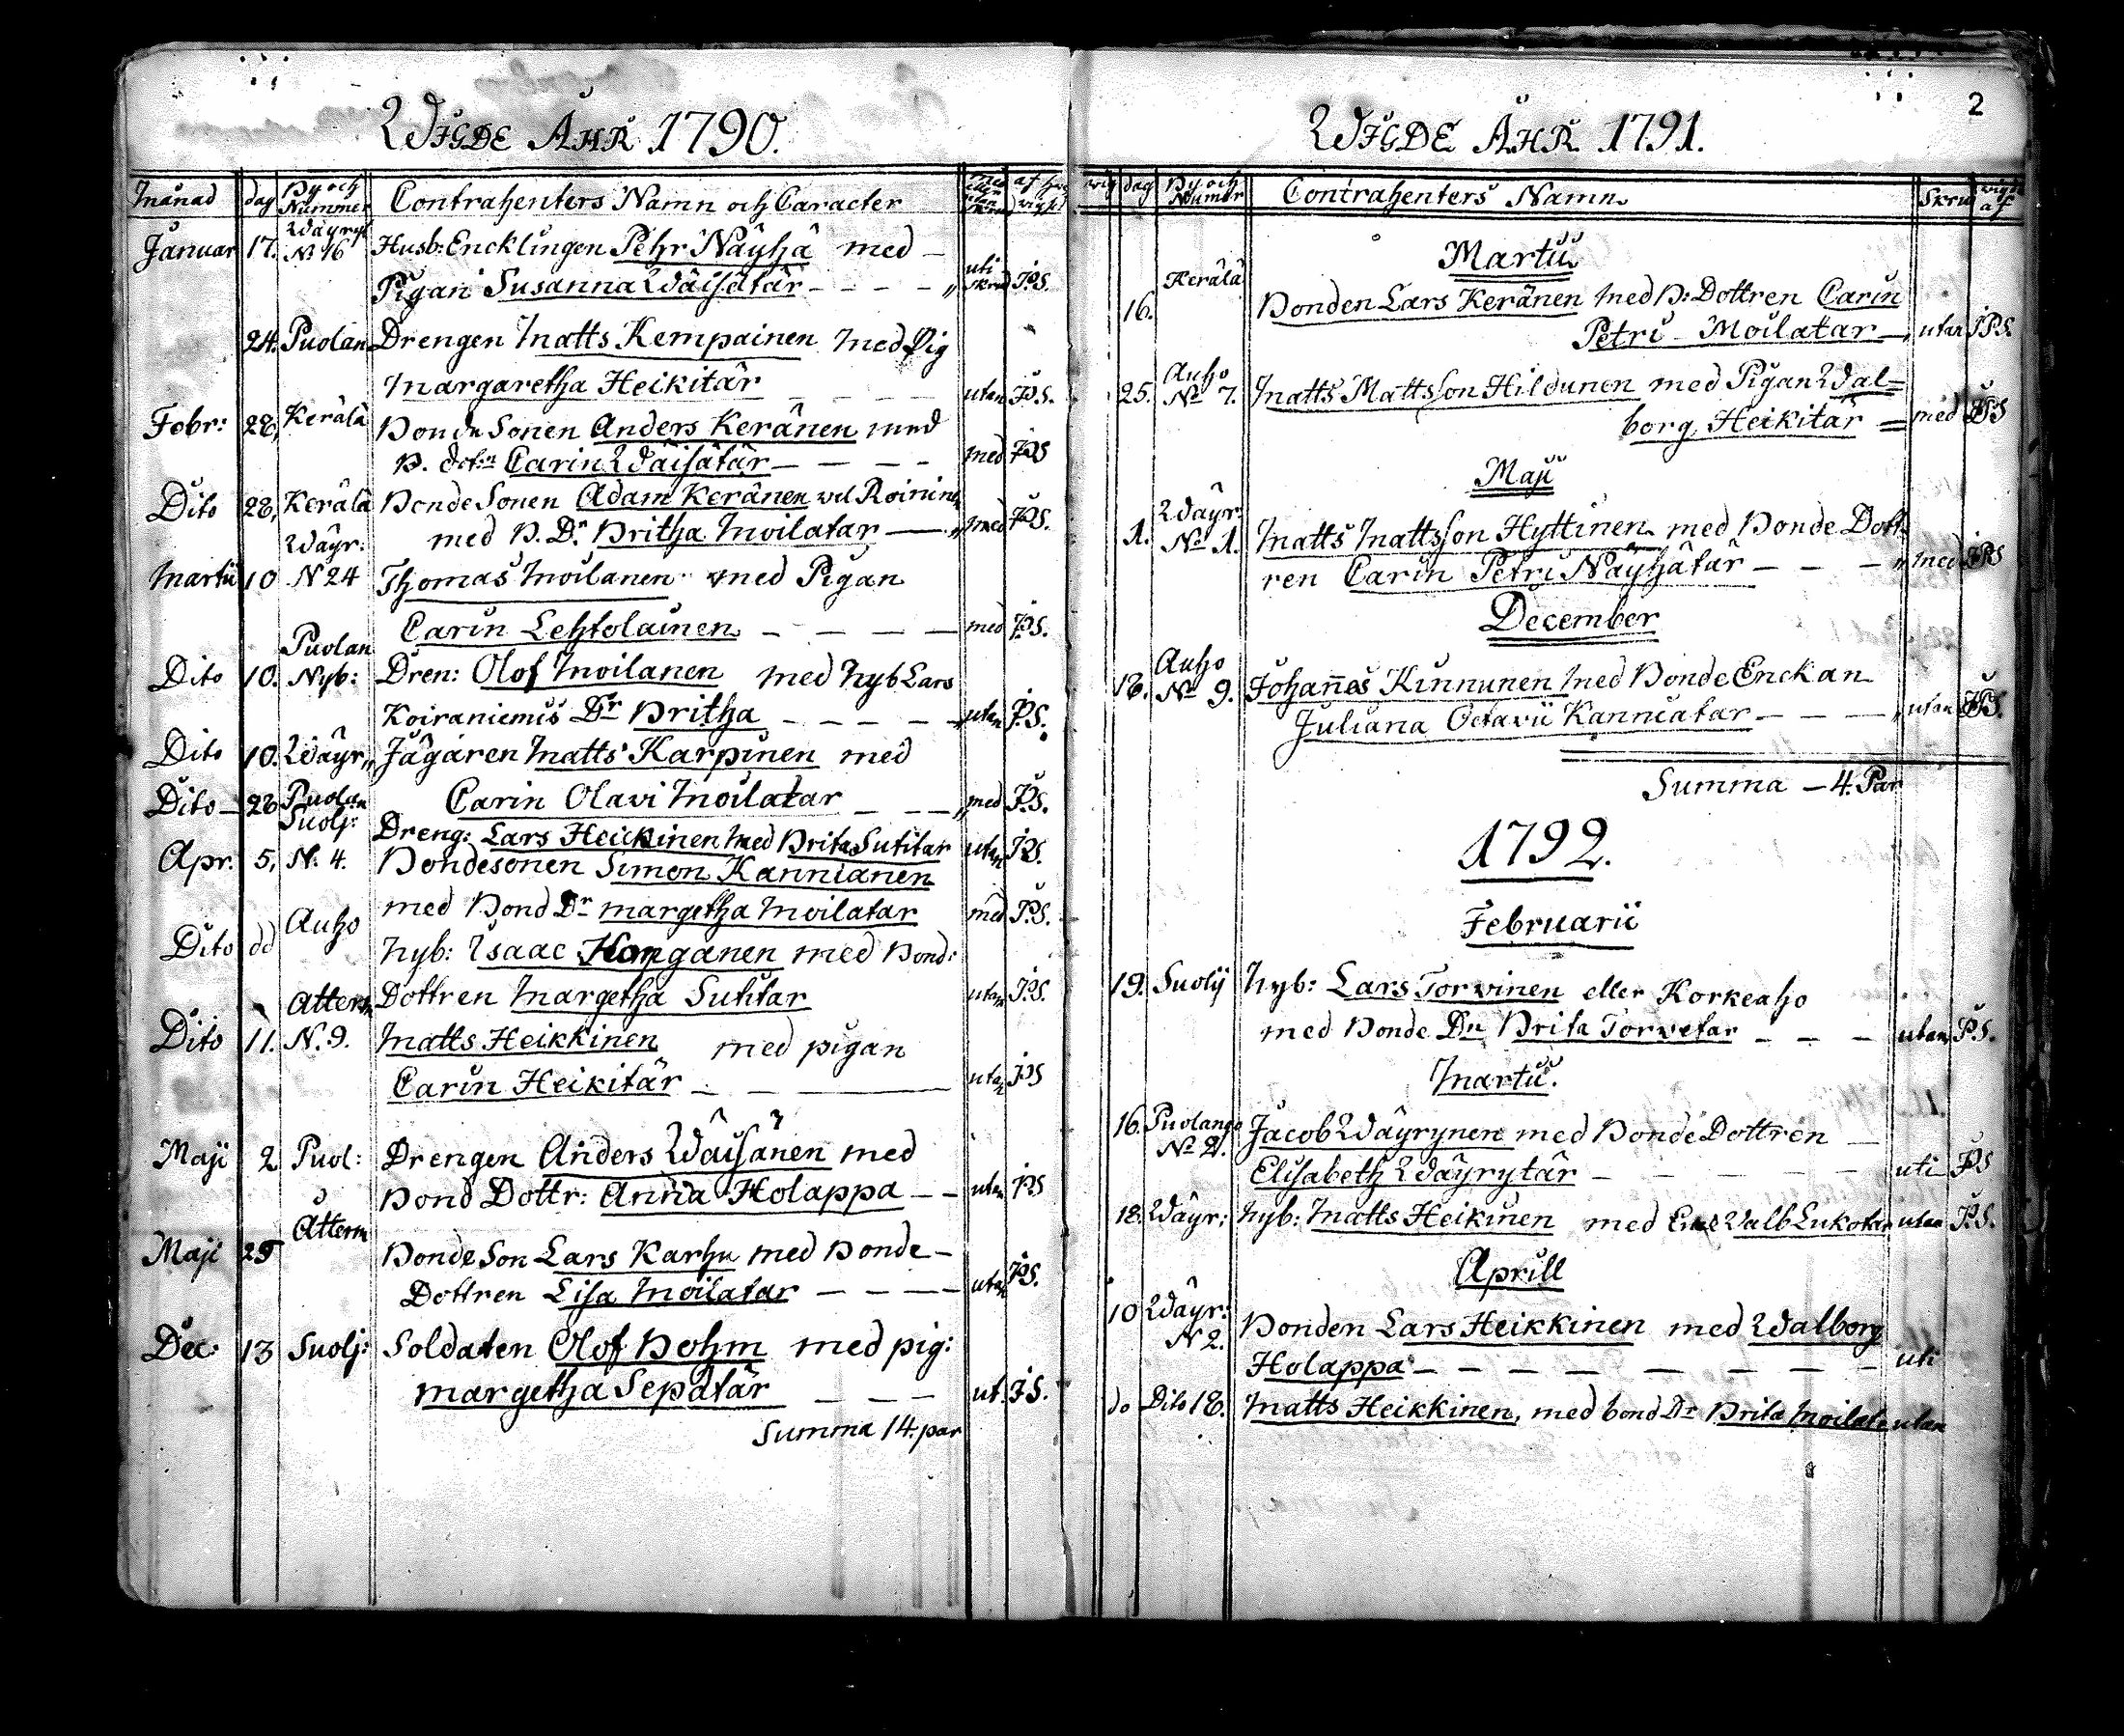 WIGDE ÅHR 1790.
Månad dag By och Nummer Contrahenters Namn och Caracter
Januar 17. Wäyryl N: 16 Husb: Encklingen Pehr Näyhä med –
Pigan Susanna Wäisätär – – – – „ uti Skrud J.P.S.
24. Puolan Drengen Matts Kempainen med Pig
Margaretha Heikitär – – – – utan J.P.S.
Febr: 28, Kerälä Bonde Sonen Anders Keränen med
B. dotn Carin Wäisätär – – – – med J.P.S
Dito 28, Kerälä Bonde Sonen Adam Keränen vel Roininen
med B. Dr. Britha Moilatar – „ med J.P.S.
Martii 10 Wäyr: N 24 Thomas Moilanen med Pigan
Carin Lehtolainen – – – – med J.P.S.
Dito 10. Puolan Nyb: Dren: Olof Moilanen med Nyb Lars
Koiraniemis Dr Britha – – – – „ utan J.P.S.
Dito 10. Wäyr„ Jägaren Matts Karpinen med
Carin Olavi Moilatar – – – „ med J.P.S.
Dito – 28 Puolan Dreng: Lars Heickinen med Brita Sutitar utan J.P.S.
Apr. 5, Suolj: N. 4. Bondesonen Simon Kannianen
med Bond Dr margetha Moilatar med J.P.S.
Dito dd Auho Nyb: Isaac Honganen med Bond:
Dottren Margetha Sutitar utan J.P.S.
Dito 11. Atterm N. 9. Matts Heikkinen med pigan
Carin Heikitär – – utan J.P.S
Maji 2 Puol: Drengen Anders Wäisänen med
Bond Dottr: Anna Holappa – – utan J.P.S
Maji 25 Atterm Bonde Son Lars Karhu med Bonde –
Dottren Lisa Moilatar – – – – utan J.P.S.
Dec: 13 Suolj: Soldaten Olof Bohm med pig:
margetha Sepätär – – – ut. J.S.
Summa 14. par
2
WIGDE ÅHR 1791.
wig dag By och Numer Contrahenters Namn Skrud wigde af
Martii
16. Kerälä Bonden Lars Keränen med B: Dottren Carin
Petri Moilatar –, utan J.P.S.
25. Auho No 7. Matts Mattsson Hildunen med Pigan Wal=
borg Heikitär = med J.P.S
Maji
1. Wäyr: No 1. Matts Mattsson Hyttinen med Bonde Dott
ren Carin Petri Näyhätär – – – „ med J.P.S
December
18. Auho No 9. Johannes Kinnunen med Bonde Enckan
Juliana Octavii Kanniatar – – – „ utan J.P.S.
Summa – 4. Par
1792.
Februarii
19. Suolij Nyb: Lars Torvinen eller Korkeaho
med Bonde Dn Brita Torvetar – – – utan J.P.S.
Martii.
16. Puolango No 21. Jacob Wäyrynen med Bonde Dottren –
Elisabeth Wäyrytär – – – – – uti J.P.S
18. Wäyr: Nyb: Matts Heikinen med Walb Lukotar utan J.P.S.
Aprill
10 Wäyr: N 2. Bonden Lars Heikkinen med Walborg
Holappa – – – – – – – – uti
do Dito 18. Matts Heikkinen, med bond Dr Brita Moilata utan